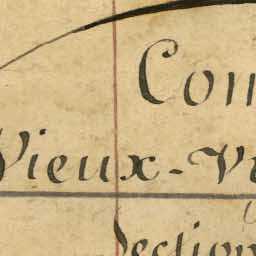 Com
Vieux-Vi
Section